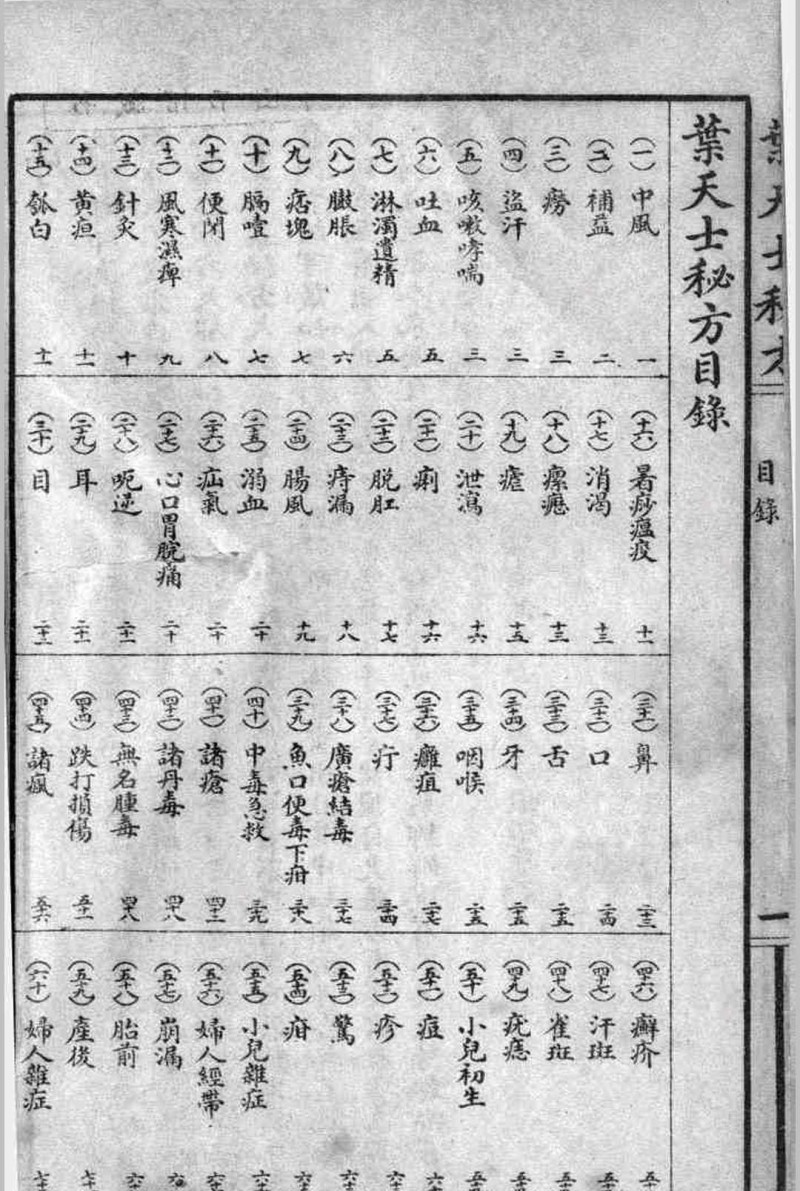 葉天士秘方目錄
(一)中風 一
(二)補益 二
(三)癆 三
(四)盜汗 三
(五)咳嗽哮喘 三
(六)吐血 五
(七)淋濁遺精 五
(八)臌脹 六
(九)痞塊 七
(十)膈噎 七
(十一)便閉 八
(十二)風寒濕痺 九
(十三)針灸 十
(十四)黃疸 十一
(十五)瓠白 十一
(十六)暑痧瘟疫 十一
(十七)消渴 十三
(十八)瘰癧 十三
(十九)瘧 十五
(二十)泄瀉 十六
(二十一)痢 十六
(二十二)脫肛 十七
(二十三)痔漏 十八
(二十四)腸風 十九
(二十五)溺血 二十
(二十六)疝氣 二十
(二十七)心口胃脘痛 二十
(二十八)呃逆 二十一
(二十九)耳 二十一
(三十)目 二十二
(三十一)鼻 二十三
(三十二)口 二十四
(三十三)舌 二十五
(三十四)牙 二十五
(三十五)咽喉 二十五
(三十六)癰疽 二十七
(三十七)疔 三十四
(三十八)廣瘡結毒 三十七
(三十九)魚口便毒下疳 三十八
(四十)中毒急救 三十九
(四十一)諸瘡
(四十二)諸丹毒 四十八
(四十三)無名腫毒 四十八
(四十四)跌打損傷 五十一
(四十五)諸瘋 五十六
(四十六)癬疥
(四十七)汗斑
(四十八)雀斑
(四十九)疣痣
(五十)小兒初生
(五十一)痘
(五十二)疹
(五十三)驚
(五十四)疳
(五十五)小兒雜症
(五十六)婦人經帶
(五十七)崩漏
(五十八)胎前
(五十九)產後
(六十)婦人雜症
葉天士秘方
目錄
一